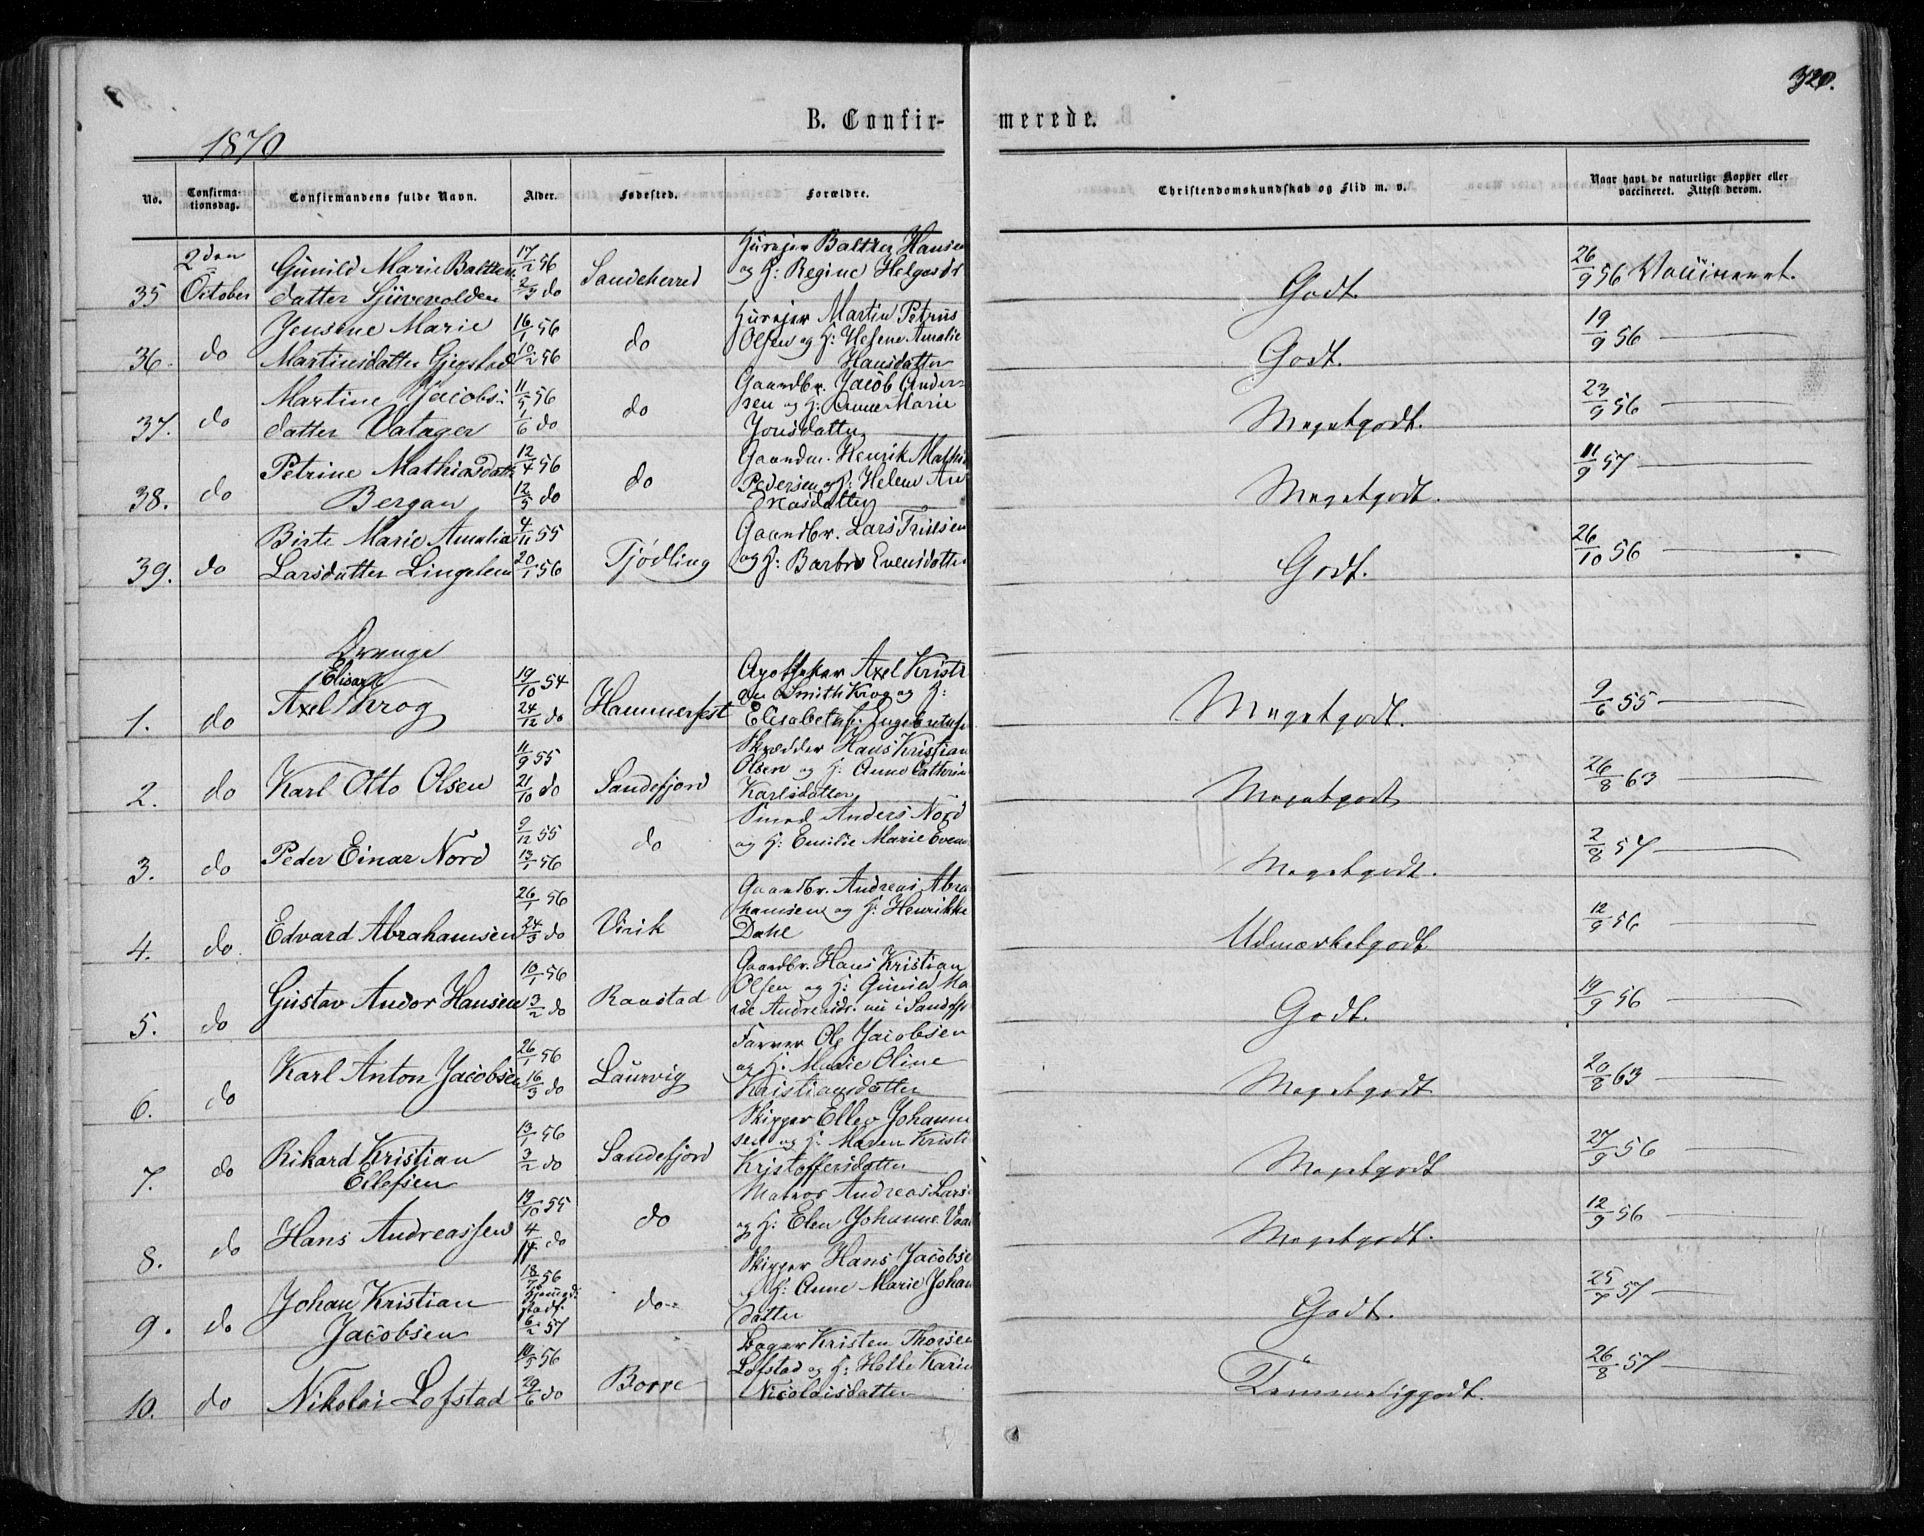 320.
B. Confirmerede.
1870
No.
Confirmationsdag.
Confirmandens fulde Navn.
Alder.
Fødested.
Forældre.
Christendomskundskab og Flid m. v.
Naar havt de naturlige Kopper eller vaccineret. Attest derom.
35 2den October Gunild Marie Baltzersdatter 17/2 56 2/3 do Sandeherred Husejer Baltzer Hansen og H: Regine Helgesdr Godt. 26/9 56 Vaccineret.
36. do Jensine Marie Martinsdatter Gjegstad 16/1 56 10/2 56 do Husejer Martin Petrus Olsen og H: Helene Amalie Hansdatter Godt. 19/9 56
37. do Martine Jacobsdatter Vatager 11/5 56 1/6 do do Gaardbr. Jacob Andersen og H: Anne Marie Jonsdatter Megetgodt. 23/9 56
38. do Petrine Mathiasdatter Bergan 12/4 56 12/5 do do Gaardm. Henrik Mathias Pedersen og H: Helene Andreasdatter Megetgodt. 11/9 57
39. do Birte Marie Amalia Larsdatter Lingelem 4/11 55 20/1 56 Tjødling Gaardbr. Lars Trulsen og H: Barbro Evensdatter Godt. 26/10 56
Drenge
1. do Axel Elisar Krog 19/10 54 24/12 do Hammerfest Apotheker Axel Kristian Smith Krog og H: Elisabeth f: Megetgodt. 9/6 55
2. do Karl Otto Olsen 11/9 55 21/10 do Sandefjord Skrædder Hans Kristian Olsen og H: Anne Cathrine Karlsdatter Megetgodt 26/8 63
3. do Peder Einar Nord 9/12 55 13/1 56 do Smed Anders Nord og H: Emilie Marie Even Megetgodt. 2/8 57
4. do. Edvard Abrahamsen 26/1 56 24/3 do Virik Gaardbr. Andreas Abrahamsen og H: Henrikke Dahl Udmærketgodt 12/9 56
5. do Gustav Andor Hansen 10/1 56 3/2 do Raastad Gaardbr. Hans Kristian Olsen og H: Gunild Ma Andreasdr. nu i Sandefj Godt. 19/9 56
6. do Karl Anton Jacobsen 26/1 56 16/3 do Laurvig Farver Ole Jacobsen og H: Marie Oline Kristiansdatter Megetgodt 20/8 63
7. do Rikard Kristian Ellefsen 13/1 56 3/2 do Sandefjord Skipper Ellev Johannesen og H: Maren Kristi Kristoffersdatter Megetgodt 27/9 56
8. do Hans Andreassen 19/10 55 4/11 do do Matros Andreas Lars og H: Elen Johanne Megetgodt. 12/9 56
9. do Johan Kristian Jacobsen 18/7 56 16/2 57 do Skipper Hans Jacobse H: Anne Marie Johan datter Godt. 25/7 57
10. do Nikolai Lofstad 10/5 56 29/6 do Borre Bager Kristen Thorsen Lofstad og H: Helle Karin Nicolaisdatter Temmeliggodt. 26/8 57